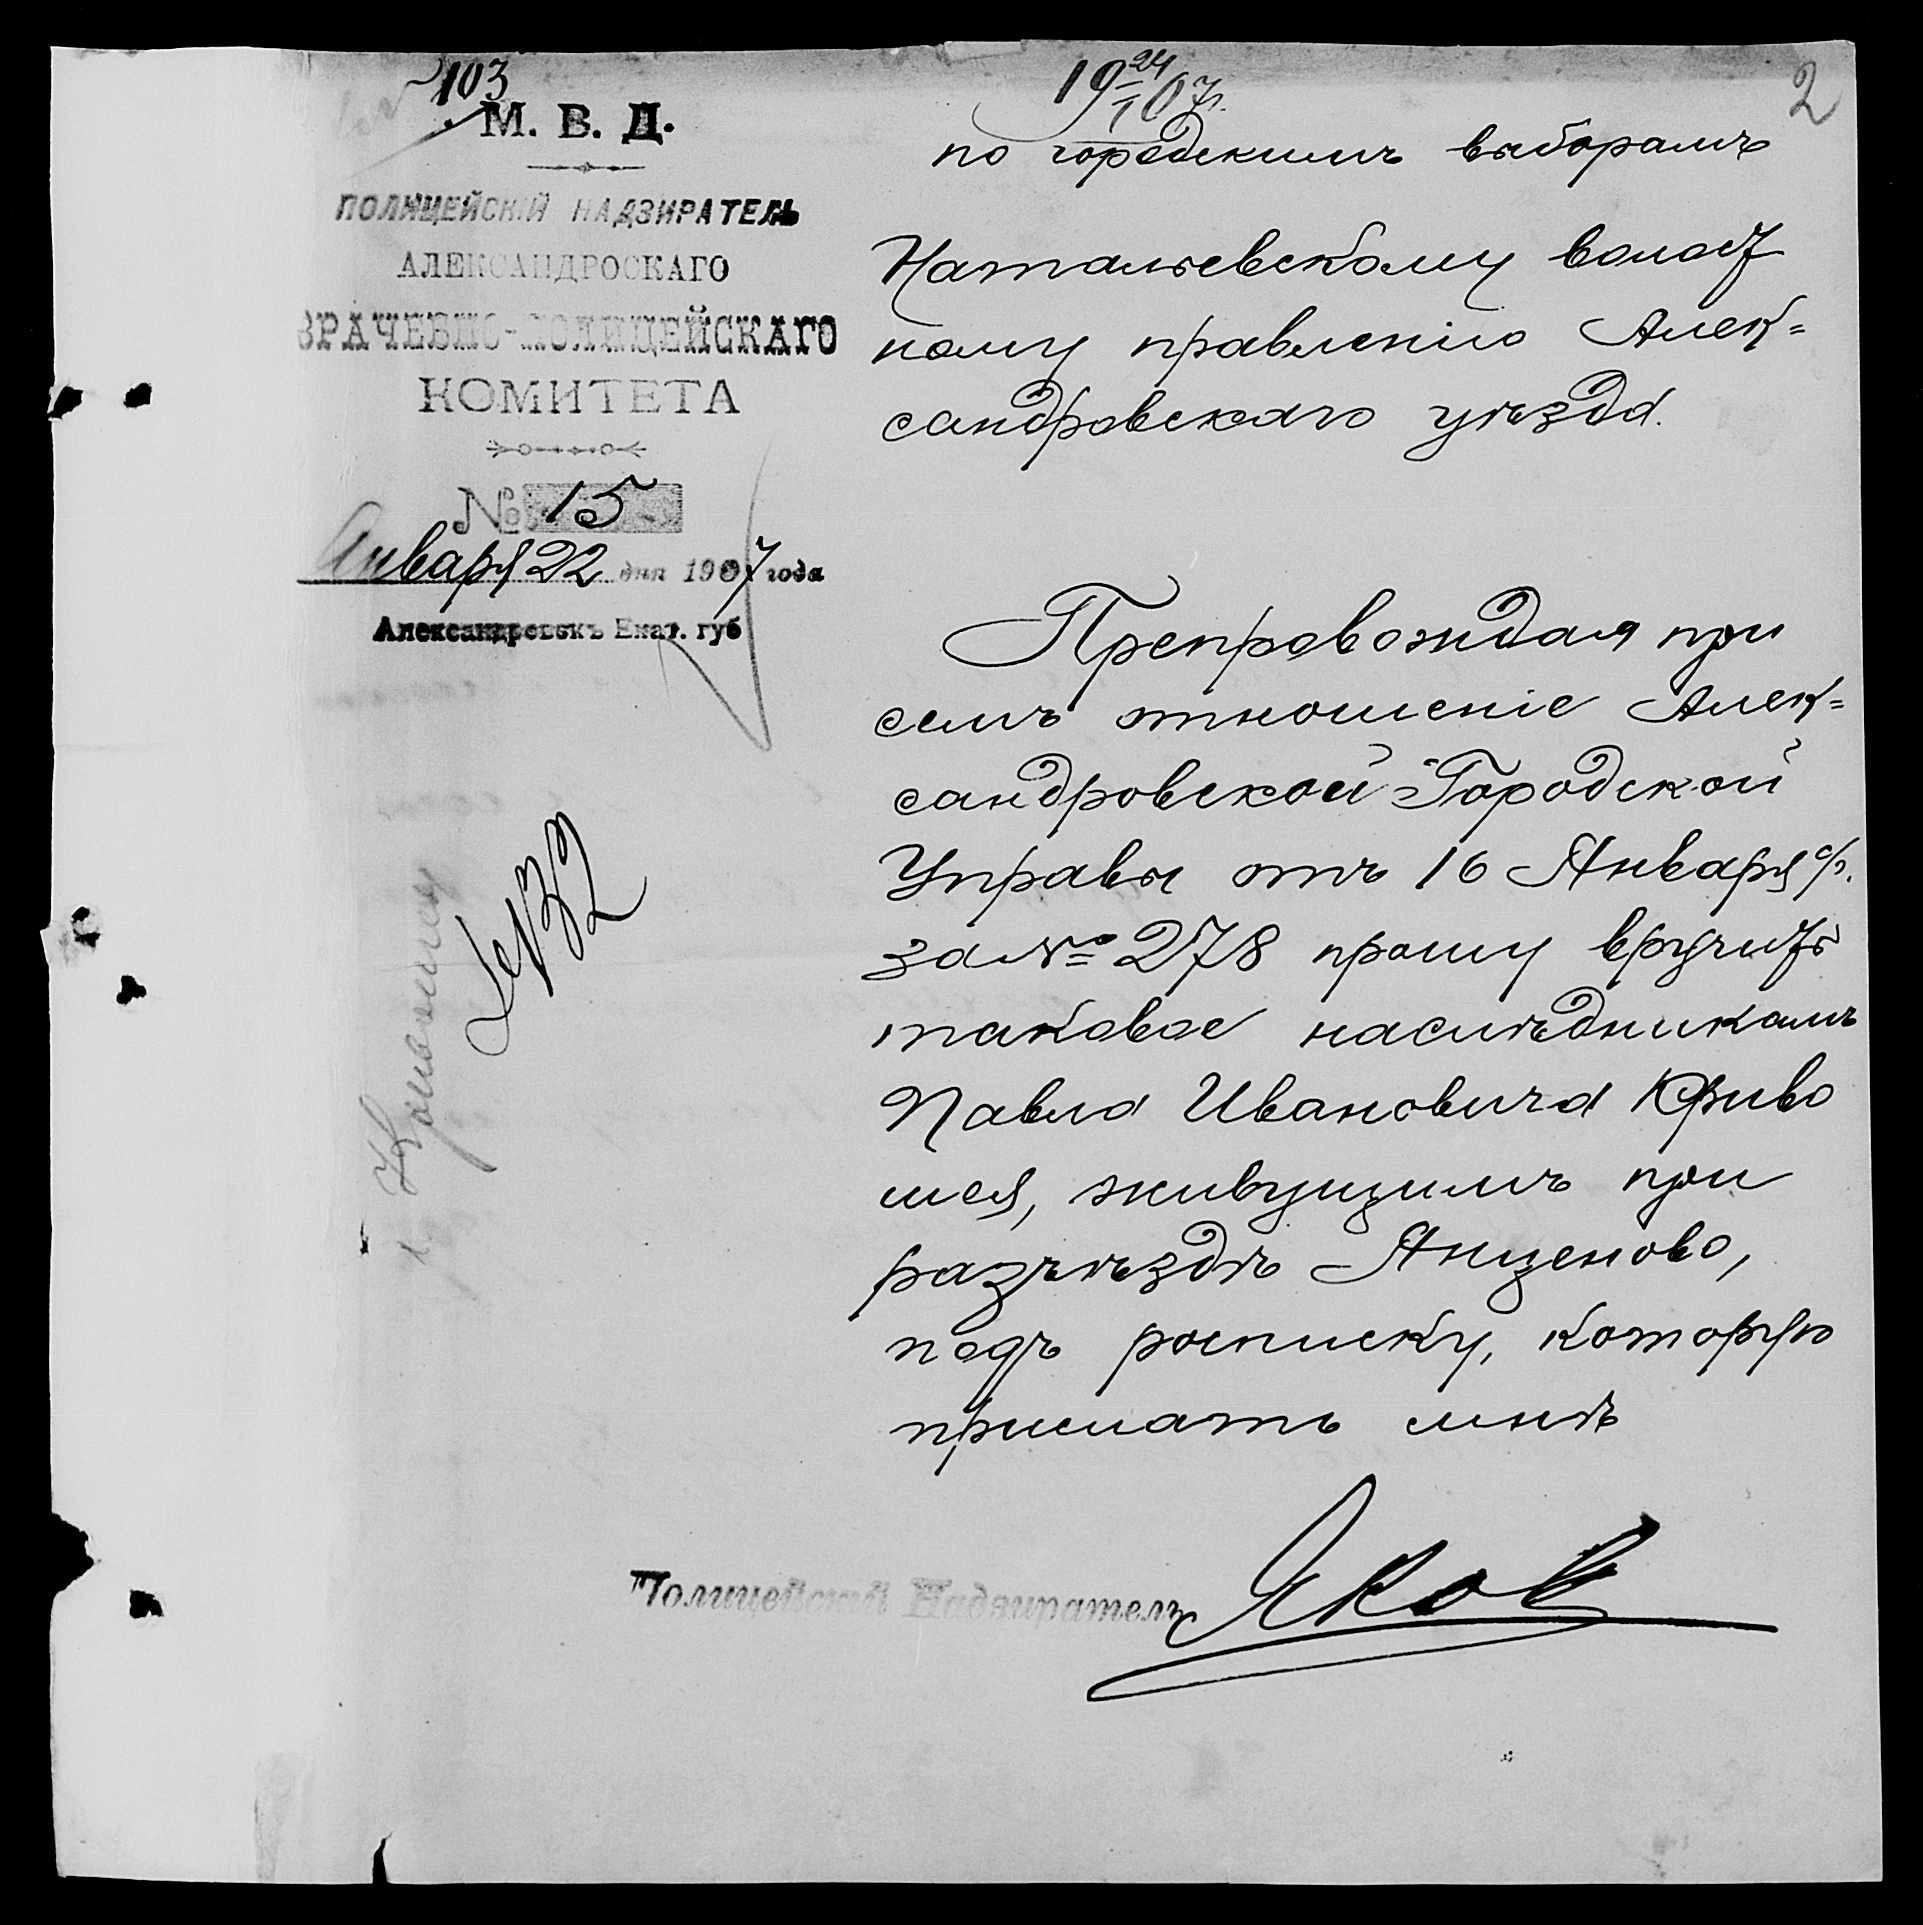 № 103
М. В. Д.
ПОЛИЦЕЙСКІЙ НАДЗИРАТЕЛЬ
АЛЕКСАНДРОСКАГО
ВРАЧЕБНО-ПОЛИЦЕЙСКАГО
КОМИТЕТА
№ 15
Января 22 дня 1907 года
Александровскъ Екат. губ
№ 32
19 24/I 07 г.
2
по городскимъ выборамъ
Натальевскому волост
ному правленію Алек=
сандровскаго уѣзда.
Препровождая при
семъ отношеніе Алек=
сандровской Городской
Управы отъ 16 Января с/г.
за № 278 прошу вручить
таковое наслѣдникамъ
Павла Ивановича Криво
шея, живущимъ при
разъѣздѣ Янценово,
подъ росписку, которую
прислать мнѣ
Полицейскій Надзиратель